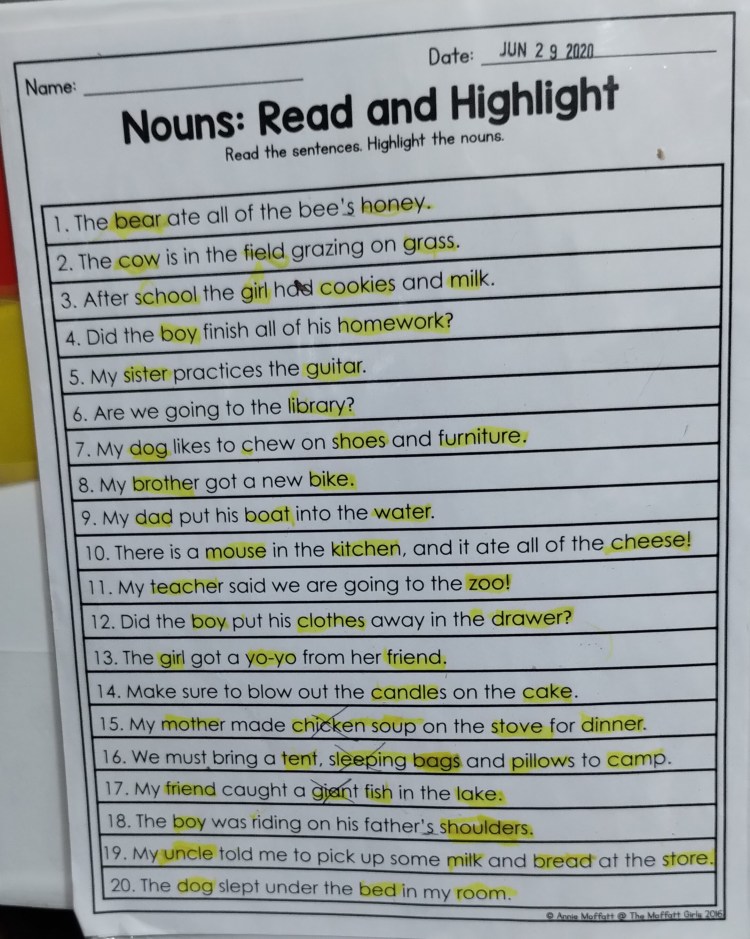 Date: JUN 2 9 2020
Name:
Nouns: Read and Highlight
Read the sentences. Highlight the nouns.
1. The bear ate all of the bee's honey.
2. The cow is in the field grazing on grass.
3. After school the girl had cookies and milk.
4. Did the boy finish all of his homework?
5. My sister practices the guitar.
6. Are we going to the library?
7. My dog likes to chew on shoes and furniture.
8. My brother got a new bike.
9. My dad put his boat into the water.
10. There is a mouse in the kitchen, and it ate all of the cheese!
11. My teacher said we are going to the zoo!
12. Did the boy put his clothes away in the drawer?
13. The girl got a yo-yo from her friend.
14. Make sure to blow out the candles on the cake.
15. My mother made chicken soup on the stove for dinner.
16. We must bring a tent, sleeping bags and pillows to camp.
17. My friend caught a giant fish in the lake.
18. The boy was riding on his father's shoulders.
19. My uncle told me to pick up some milk and bread at the store.
20. The dog slept under the bed in my room.
© Annie Moffatt @ The Moffatt Girls 2016